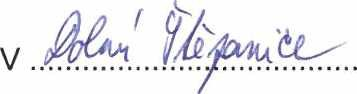 V Dolní Štěpanice